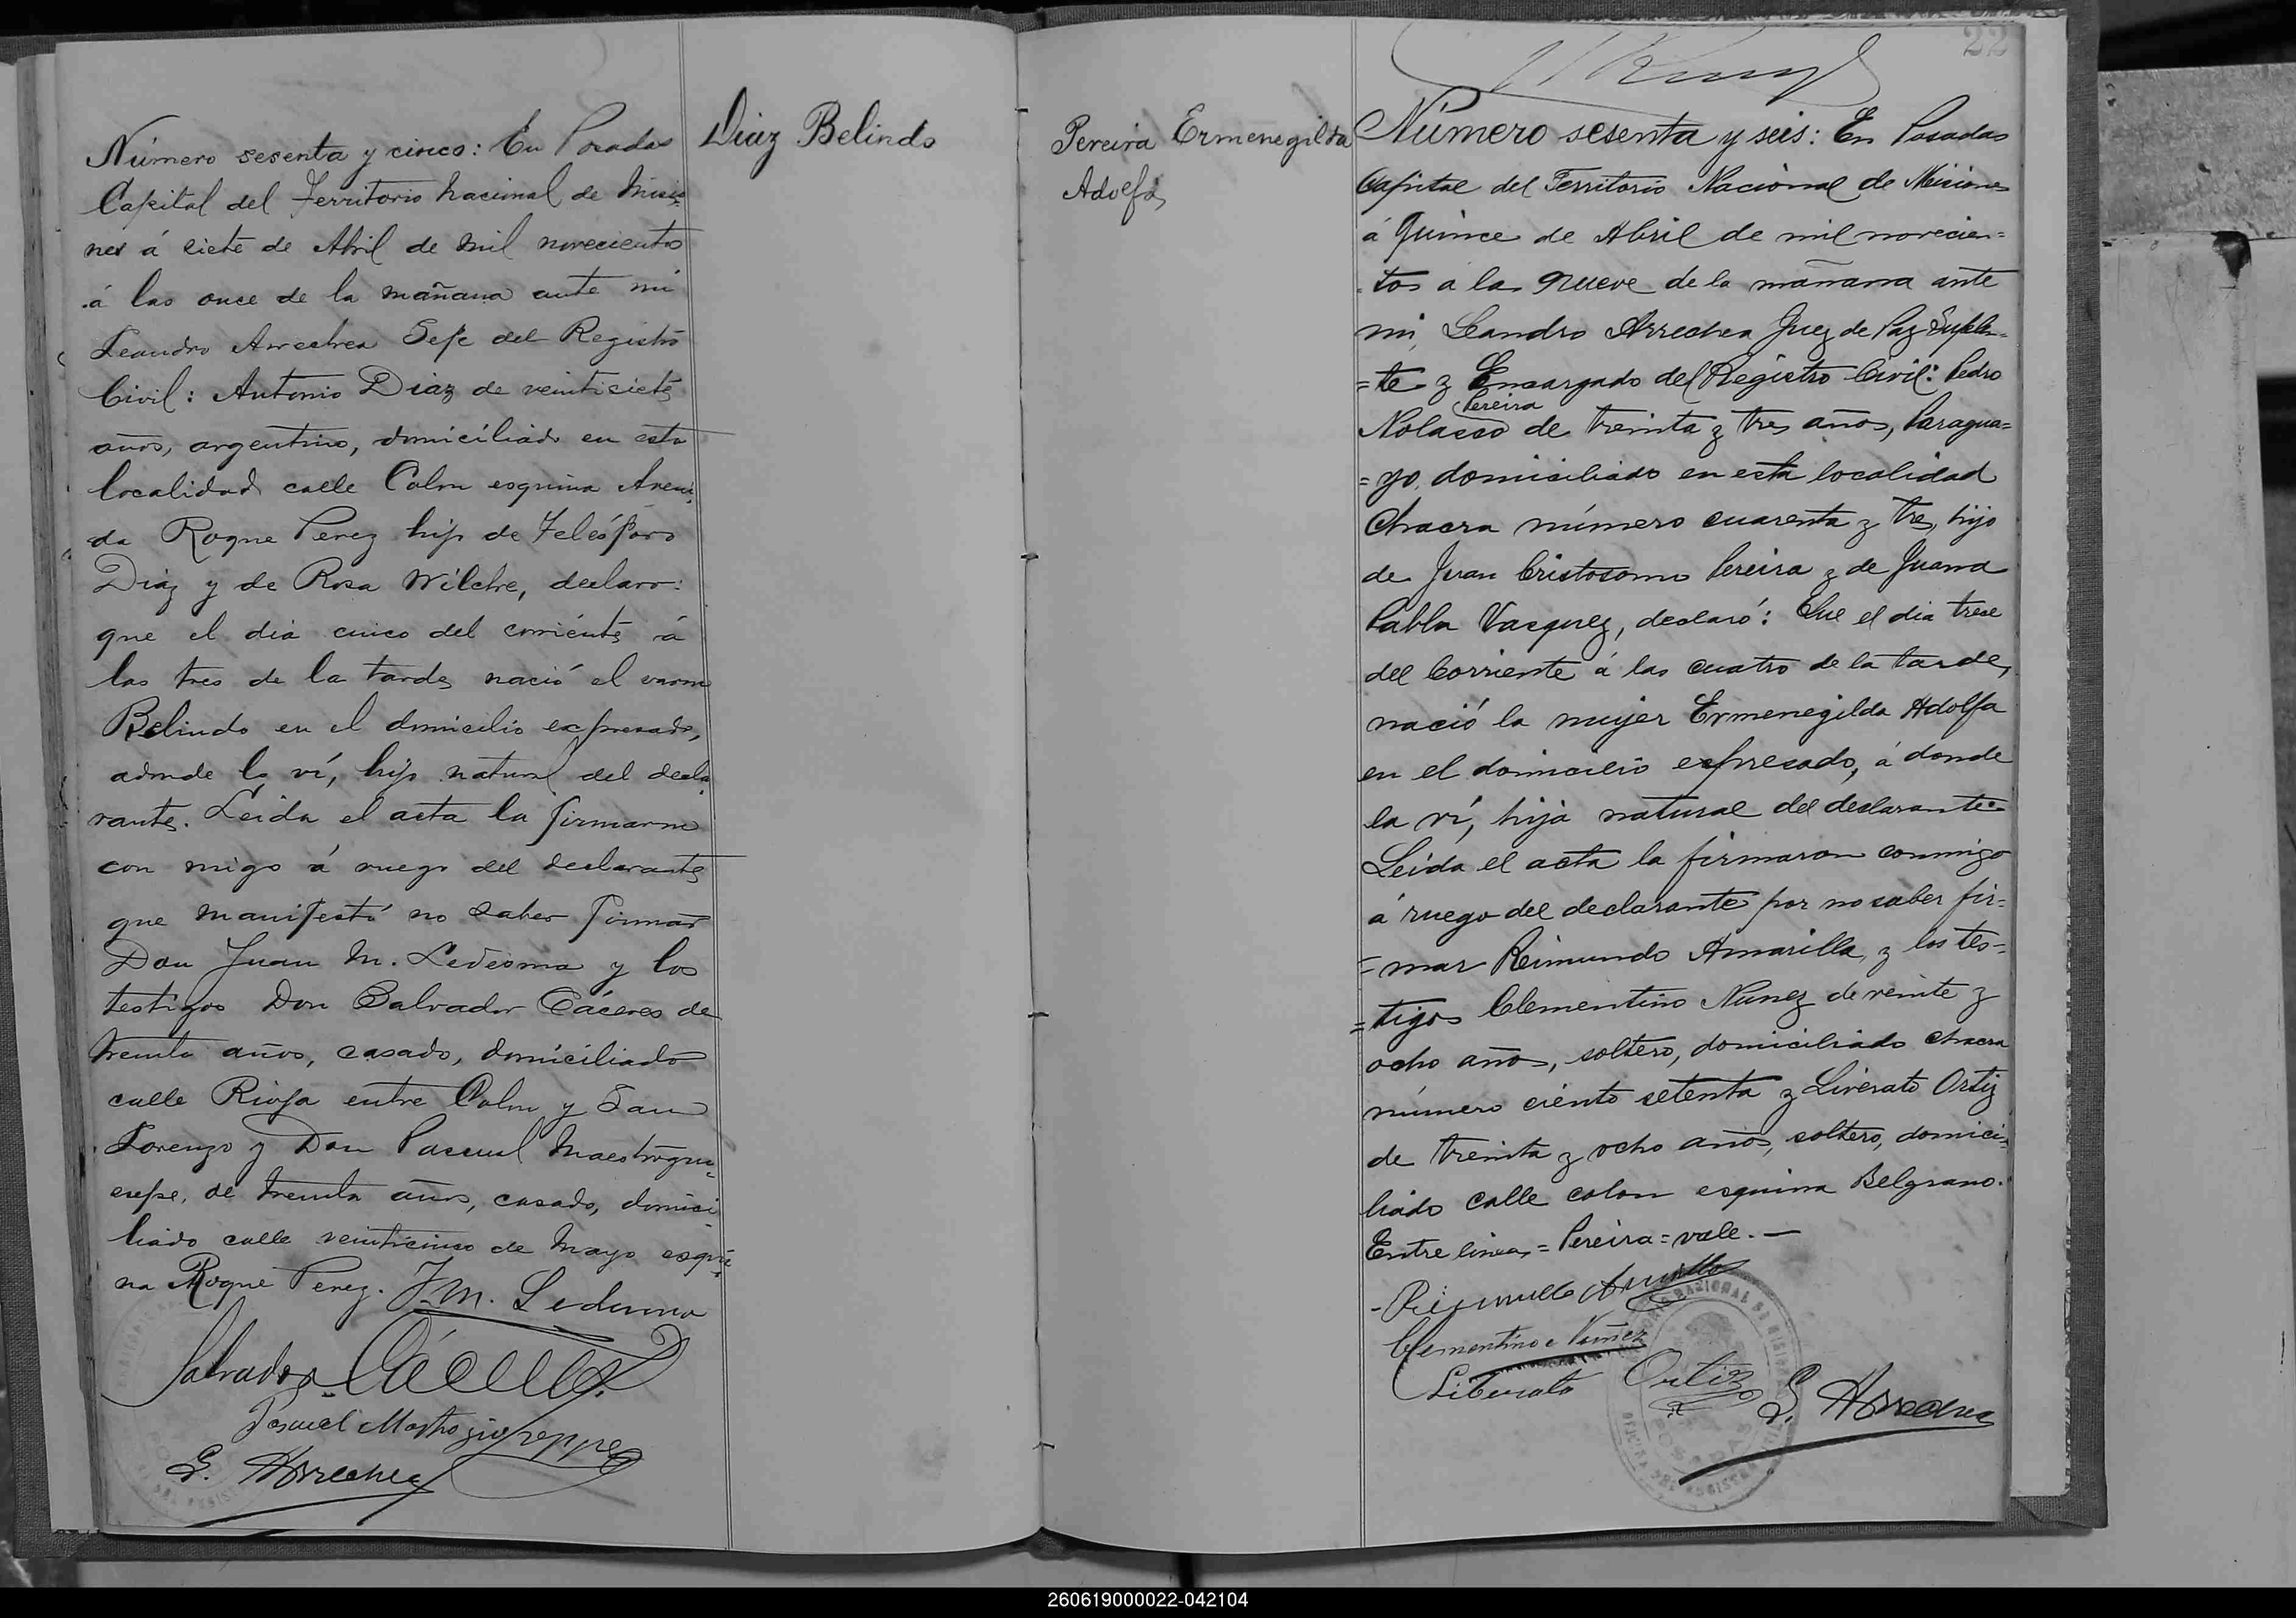 Número sesenta y cinco: En Posadas
Capital del Territorio Nacional de Misio=
nes á siete de Abril de mil novecientos
á las once de la mañana ante mi
Leandro Arrechea Jefe del Registro
Civil: Antonio Diaz de veintisiete
años, argentino, domiciliado en esta
localidad calle Colon esquina Aveni=
da Roque Perez hijo de Telésforo
Diaz y de Rosa Wilche, declaro:
que el dia cinco del corriente á
las tres de la tarde nació el varon
Belindo en el domicilio expresado,
adonde lo ví, hijo natural del decla=
rante. Leida el acta la firmaron
con migo á ruego del declarante
que manifestó no saber firmar
Don Juan M. Ledesma y los
testigos Don Salvador Cáceres de
treinta años, casado, domiciliado
calle Rioja entre Colon y San
Lorenzo y Don Pascual Maestrogiu=
sepe, de treinta años, casado, domici
liado calle veinticinco de Mayo esqui=
na Roque Perez. J.M. Ledesma
Salvador Cáceres
Pascuel Mastrogiuseppe
L. Arrechea
Diaz Belindo
Pereira Ermenegilda
Adolfa
22
Número sesenta y seis: En Posadas
Capital del Territorio Nacional de Misiones
á quince de Abril de mil novecien=
tos a las nueve de la mañana ante
mi, Leandro Arrechea Juez de Paz Suplen=
=te y Encargado del Registro Civil: Pedro
Pereira
Nolasco de treinta y tres años, Paragua=
=yo, domiciliado en esta localidad
Chacra número cuarenta y tres, hijo
de Juan Cristosomo Pereira y de Juana
Pabla Vasquez, declaró: Que el dia trece
del Corriente á las cuatro de la tarde,
nació la mujer Ermenegilda Adolfa
en el domicilio expresado, á donde
la ví, hija natural del declarante.
Leida el acta la firmaron conmigo
á ruego del declarante por no saber fir=
=mar Reimundo Amarilla, y los tes=
=tigos Clementino Nunez de veinte y
ocho años, soltero, domiciliado chacra
número ciento setenta y Liverato Ortiz
de treinta y ocho años, soltero, domici=
liado calle colon esquina Belgrano.
Entre lineas = Pereira = vale. —
Clementino Nuñez
Liberato Ortiz L. Arrechea
POSADAS
260619000022-042104